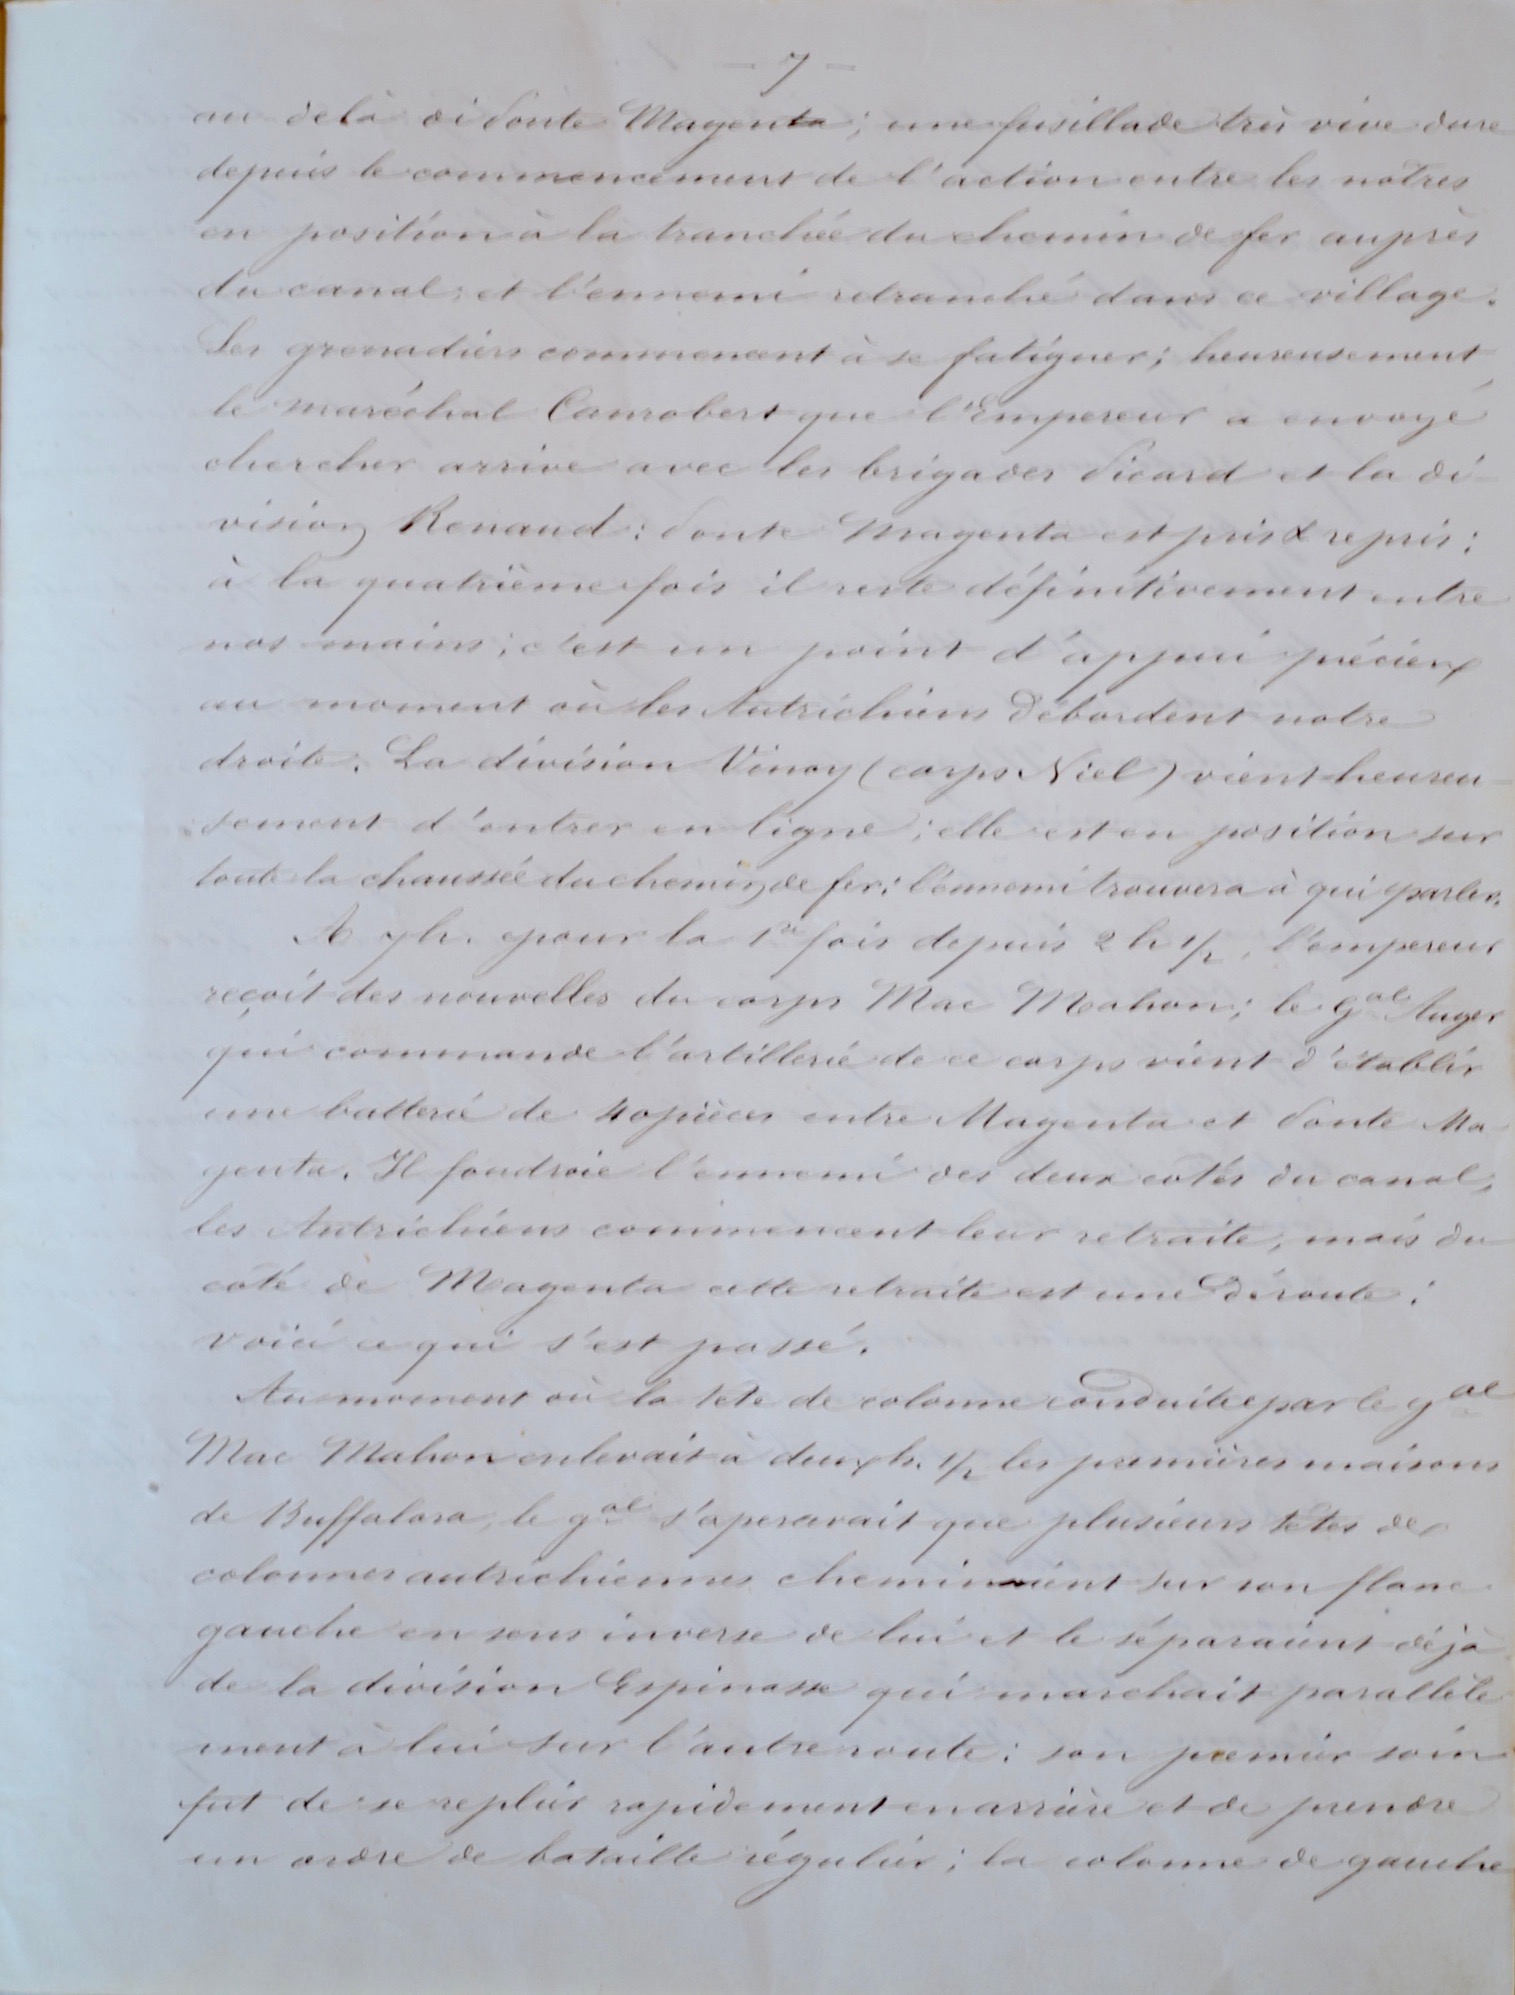 — 7 —
au delà di Ponte Magenta ; une fusillade très vive dure
depuis le commencement de l'action entre les nôtres
en position à la tranchée du chemin de fer auprès
du canal, et l'ennemi retranché dans ce village.
Les grenadiers commencent à se fatiguer ; heureusement
le maréchal Canrobert que l'Empereur a envoyé
chercher arrive avec les brigades Picard et la di-
vision Renaud : Ponte Magenta est pris & repris ;
à la quatrième fois il reste définitivement entre
nos mains ; c'est un point d'appui précieux
au moment où les Autrichiens débordent notre
droite. La division Vinoy (corps Niel) vient heureu-
sement d'entrer en ligne ; elle est en position sur
toute la chaussée du chemin de fer : l'ennemi trouvera à qui parler.
A 7h. pour la 1re fois depuis 2 h 1/2, l'empereur
reçoit des nouvelles du corps Mac Mahon ; le gal Auger
qui commande l'artillerie de ce corps vient d'établir
une batterie de 40 pièces entre Magenta et Ponte Ma-
genta. Il foudroie l'ennemi des deux côtés du canal,
les Autrichiens commencent leur retraite, mais du
côté de Magenta cette retraite est une déroute ;
voici ce qui s'est passé.
Au moment où la tête de colonne conduite par le gal
Mac Mahon enlevait à deux h. 1/2 les premières maisons
de Buffalora, le gal s'apercevait que plusieurs têtes de
colonnes autrichiennes cheminaient sur son flanc
gauche en sens inverse de lui et le séparaient déjà
de la division Espinasse qui marchait parallèle
ment à lui sur l'autre route : son premier soin
fut de se replier rapidement en arrière et de prendre
un ordre de bataille régulier ; la colonne de gauche